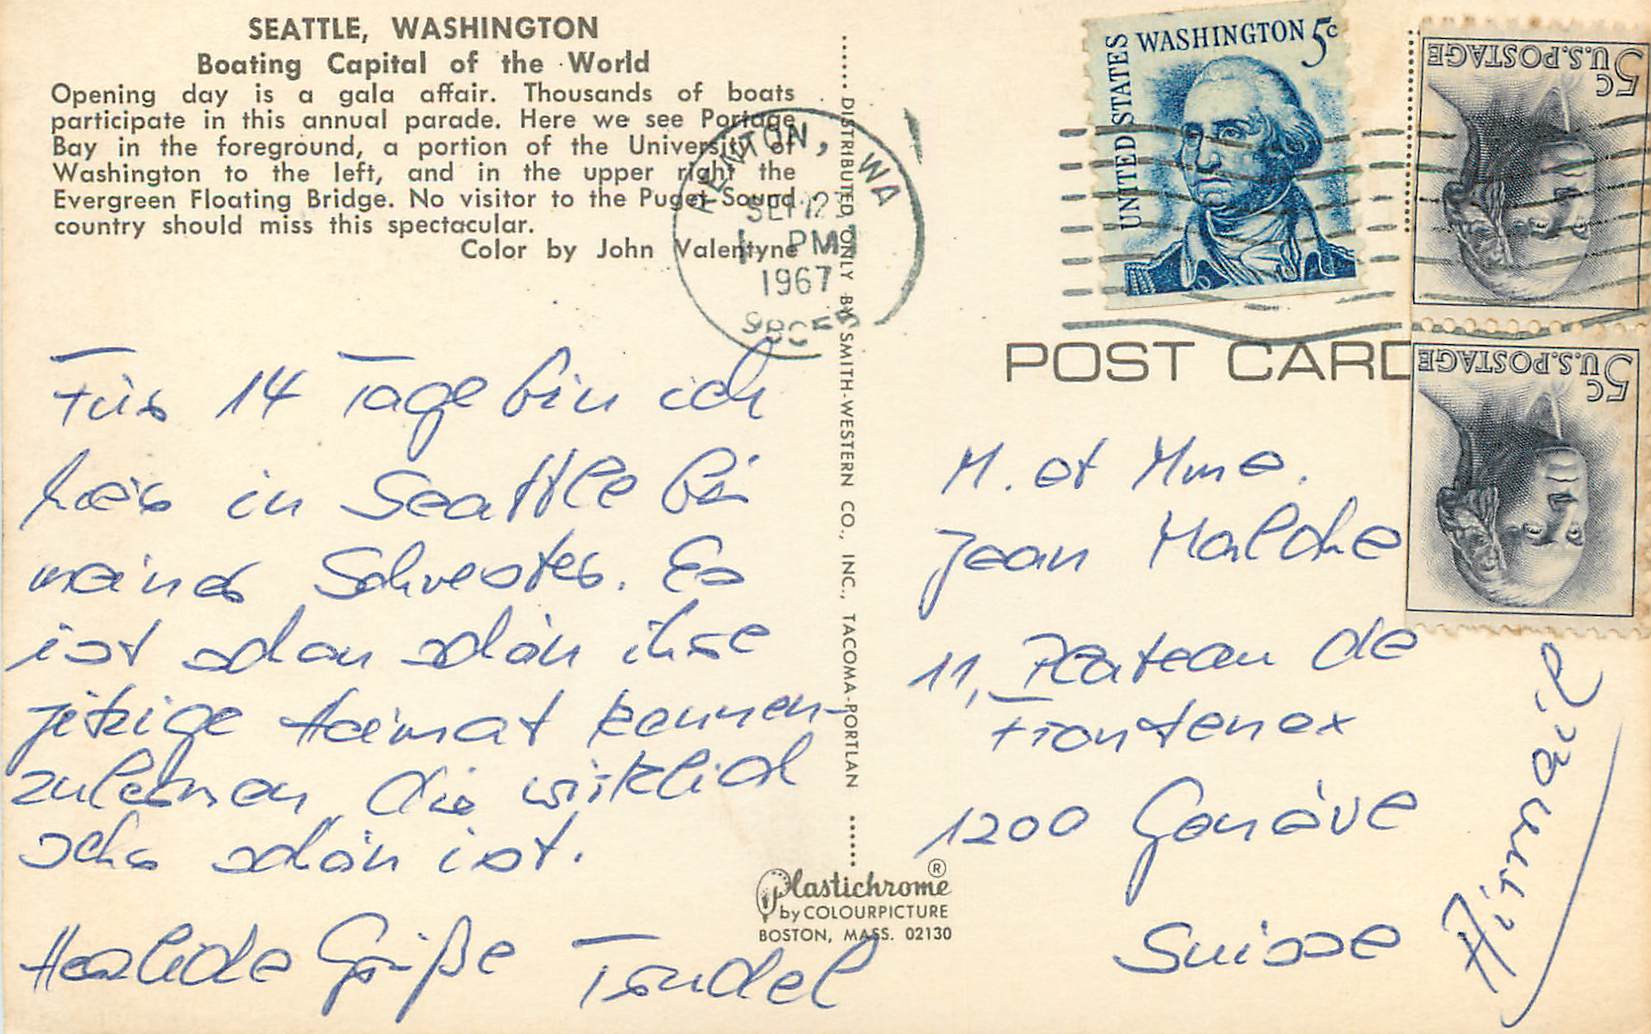 SEATTLE, WASHINGTON
Boating Capital of the World
Opening day is a gala affair. Thousands of boats
participate in this annual parade. Here we see Portage
Bay in the foreground, a portion of the University of
Washington to the left, and in the upper right the
Evergreen Floating Bridge. No visitor to the Puget Sound
country should miss this spectacular.
Color by John Valentyne
Für 14 Tage bin ich
hier in Seattle bei
meiner Schwester. Es
ist schon schön ihre
jetzige Heimat kennen-
zulernen die wirklich
sehr schön ist.
Herzliche Grüße Trudel
DISTRIBUTED ONLY BY SMITH-WESTERN CO., INC., TACOMA-PORTLAN
Plastichrome ®
by COLOURPICTURE
BOSTON, MASS. 02130
RENTON, WA
SEP 23
PM
1967
UNITED STATES
WASHINGTON 5c
5c U.S. POSTAGE
5c U.S. POSTAGE
POST CARD
M. et Mme.
Jean Malche
11, Plateau de
Frontenex
1200 Genève
Suisse
Airmail